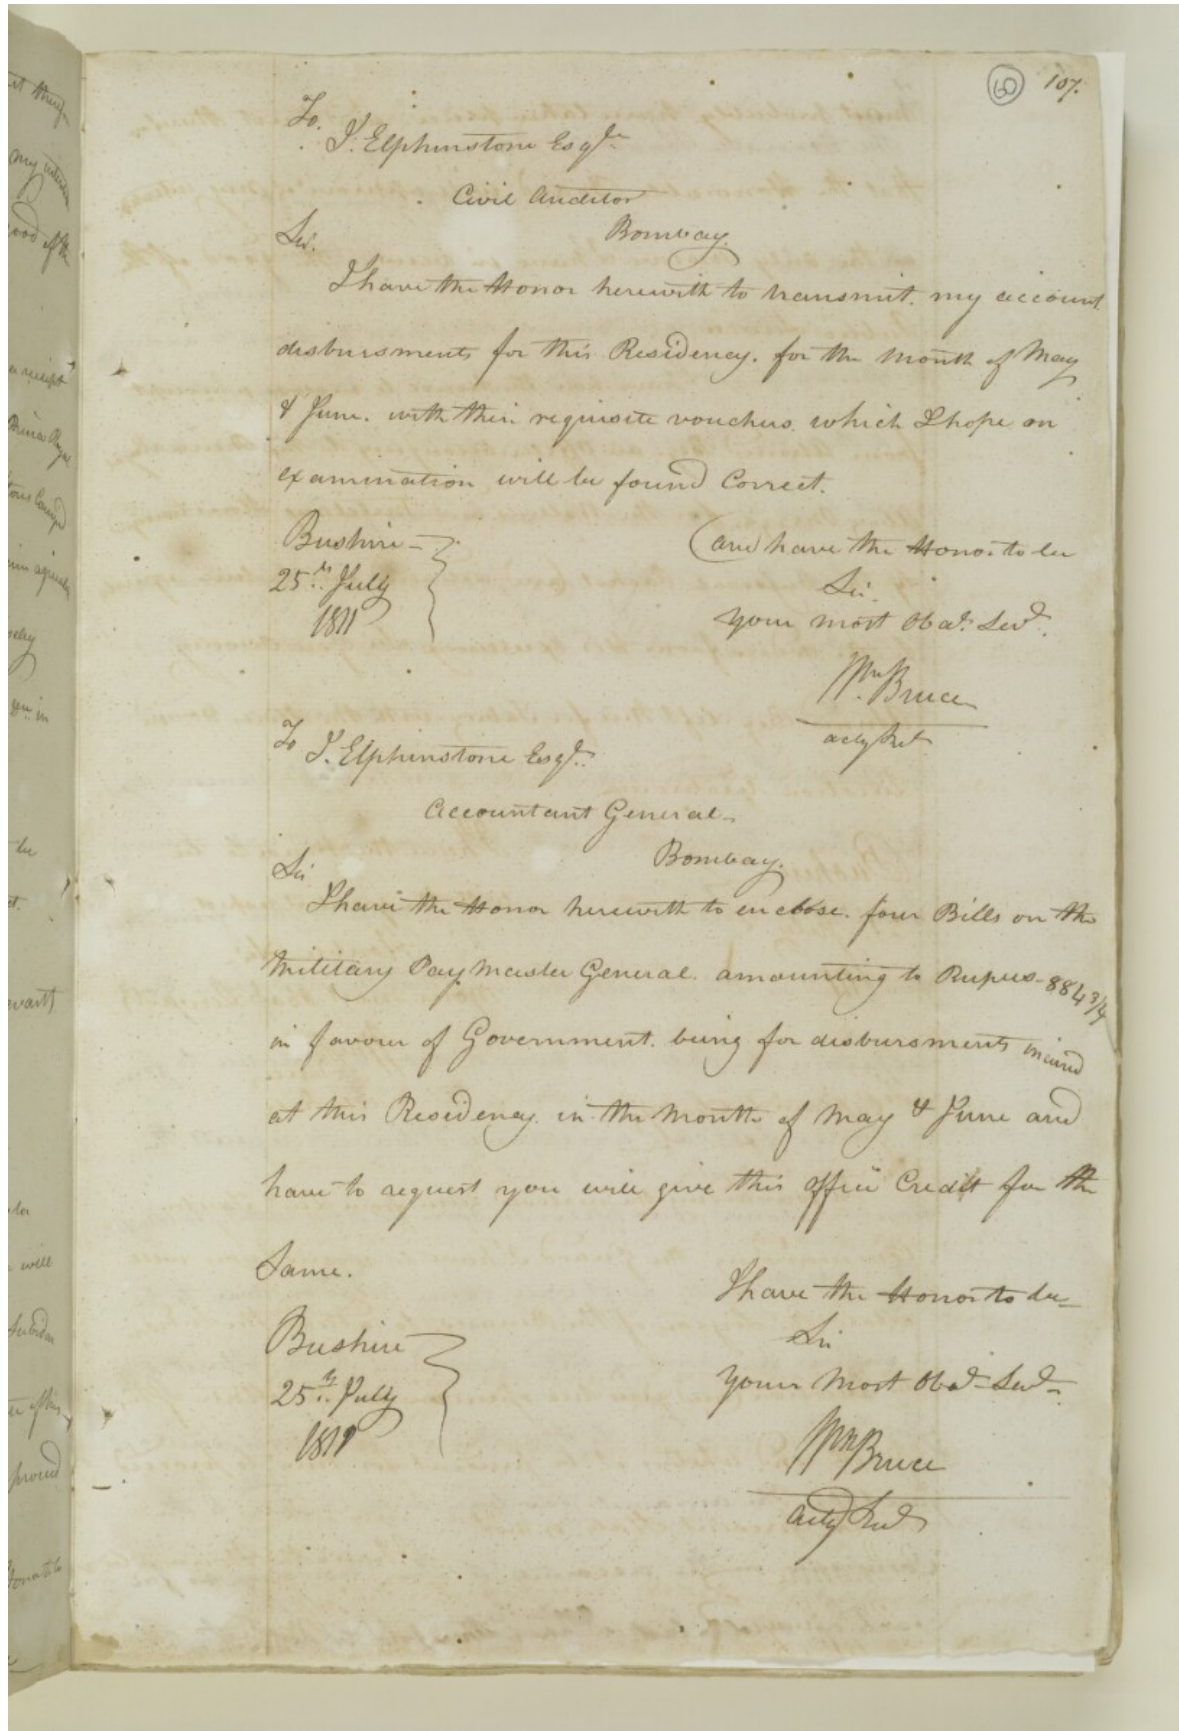 60 107.
To.
J. Elphinstone Esqre
Civil Auditor
Bombay.
Sir.
I have the Honor herewith to transmit. my account
disbursments for this Residency. for the Month of May
& June. with their requisite vouchers. which I hope on
examination will be found Correct.
Bushire
25th July
1811
(and have the Honor to be
Sir.
your most Obedt. Servt.
Wm. Bruce
actg Rest
To J. Elphinstone Esqr.
Accountant General
Bombay.
Sir
I have the Honor herewith to enclose. four Bills on the
Military Pay Master General. amounting to Rupees 884 3/4
in favour of Government. being for disbursments incured
at this Residency. in the Month of May & June and
have to request you will give this office Credit for the
Same.
Bushire
25th July
1811
I have the Honor to be
Sir
Your Most Obedt Servt
Wm Bruce
actg Rest